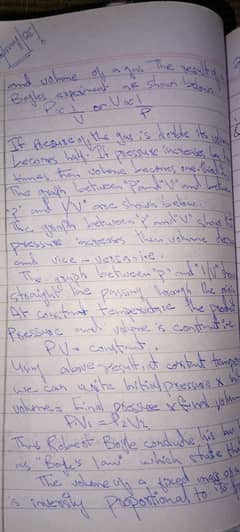 and volume of a gas The result of
Boyles experiment are shown below.
P ∝ 1/V or V ∝ 1/P
If Pressure of the gas is double its
becomes half. If pressure increases by
times then volume becomes one-
The graph between "P" and "V" and
"P" and "1/V" are shown below.
The graph between "P" and "V" show
pressure increases then volume
and vice-versa
The graph between "P" and "1/V"
straight line passing through the
At constant temperature the product
Pressure and volume is constant i.e
PV = constant.
Using above result, at constant
we can write Initial Pressure x
volume = Final Pressure x final volume
P₁V₁ = P₂V₂
Thus Robert Boyle his law
as "Boyle's law" which state
The volume of a fixed mass of
is inversly proportional to